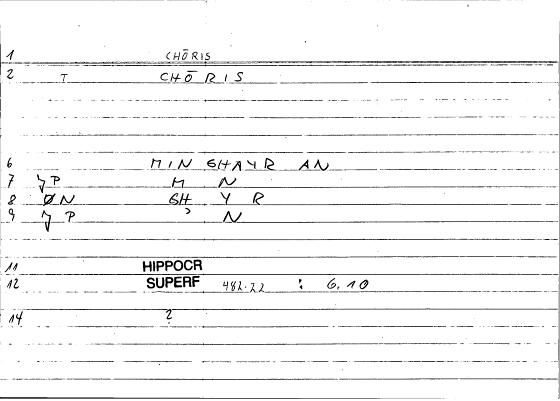 1 CHŌRIS
2 T CHŌ RIS
6 MIN GHAYR AN
7 JP M N
8 ØN GH Y R
9 JP ʾ N
11 HIPPOCR
12 SUPERF 482.22 : 6.10
14 2